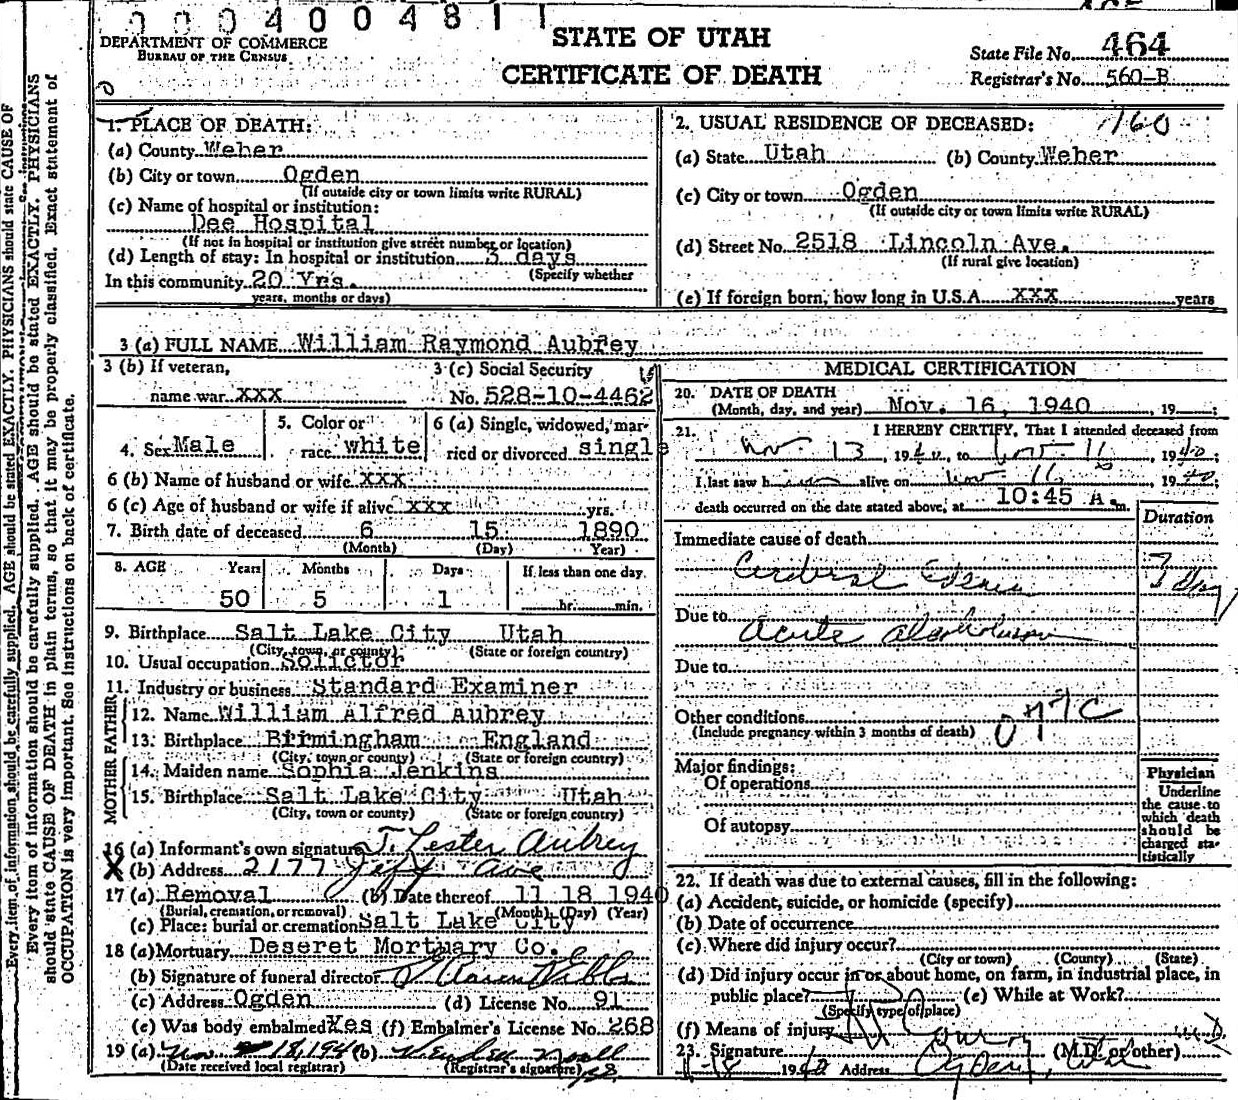 0004004811
DEPARTMENT OF COMMERCE
BUREAU OF THE CENSUS
STATE OF UTAH
CERTIFICATE OF DEATH
State File No. 464
Registrar's No. 560-B
1. PLACE OF DEATH:
(a) County Weber
(b) City or town Ogden
(If outside city or town limits write RURAL)
(c) Name of hospital or institution:
Dee Hospital
(If not in hospital or institution give street number or location)
(d) Length of stay: In hospital or institution 3 days
(Specify whether
In this community 20 Yrs.
years, months or days)
2. USUAL RESIDENCE OF DECEASED: 160
(a) State Utah (b) County Weber
(c) City or town Ogden
(If outside city or town limits write RURAL)
(d) Street No. 2518 Lincoln Ave.
(If rural give location)
(e) If foreign born, how long in U.S.A. XXX years
3 (a) FULL NAME William Raymond Aubrey
3 (b) If veteran,
name war XXX
3 (c) Social Security
No. 528-10-4462
4. Sex Male
5. Color or
race white
6 (a) Single, widowed, mar-
ried or divorced single
6 (b) Name of husband or wife XXX
6 (c) Age of husband or wife if alive XXX yrs.
7. Birth date of deceased 6 15 1890
(Month) (Day) Year)
8. AGE Years Months Days If less than one day
50 5 1 hr. min.
9. Birthplace Salt Lake City Utah
(City, town, or county) (State or foreign country)
10. Usual occupation Solictor
11. Industry or business Standard Examiner
FATHER
12. Name William Alfred Aubrey
13. Birthplace Birmingham England
(City, town or county) (State or foreign country)
MOTHER
14. Maiden name Sophia Jenkins
15. Birthplace Salt Lake City Utah
(City, town or county) (State or foreign country)
16 (a) Informant's own signature T. Lester Aubrey
X (b) Address 2177 Jeff Ave
17 (a) Removal (b) Date thereof 11 18 1940
(Burial, cremation, or removal) (Month) (Day) (Year)
(c) Place: burial or cremation Salt Lake City
18 (a) Mortuary Deseret Mortuary Co.
(b) Signature of funeral director
(c) Address Ogden (d) License No. 91
(e) Was body embalmed Yes (f) Embalmer's License No. 268
19 (a) Nov 18, 1940 (b)
(Date received local registrar) (Registrar's signature)
MEDICAL CERTIFICATION
20. DATE OF DEATH
(Month, day, and year) Nov. 16, 1940, 19 ;
21. I HEREBY CERTIFY, That I attended deceased from
Nov. 13, 1940, to Nov 16 1940;
I last saw h alive on Nov 16 1940;
death occurred on the date stated above, at 10:45 A m.
Duration
Immediate cause of death
Cerebral Edema 3 days
Due to Acute alcoholism
Due to
Other conditions
(Include pregnancy within 3 months of death) 077C
Major findings:
Of operations
Of autopsy
Physician
Underline
the cause to
which death
should be
charged sta-
tistically
22. If death was due to external causes, fill in the following:
(a) Accident, suicide, or homicide (specify)
(b) Date of occurrence
(c) Where did injury occur?
(City or town) (County) (State)
(d) Did injury occur in or about home, on farm, in industrial place, in
public place? (e) While at Work?
(Specify type of place)
(f) Means of injury
23. Signature (M.D. or other) M.D.
1940 Address Ogden, Utah
Every item of information should be carefully supplied. AGE should be stated EXACTLY. PHYSICIANS should state CAUSE OF
Every item of information should be carefully supplied. AGE should be stated EXACTLY. PHYSICIANS
should state CAUSE OF DEATH in plain terms, so that it may be properly classified. Exact statement of
OCCUPATION is very important. See instructions on back of certificate.